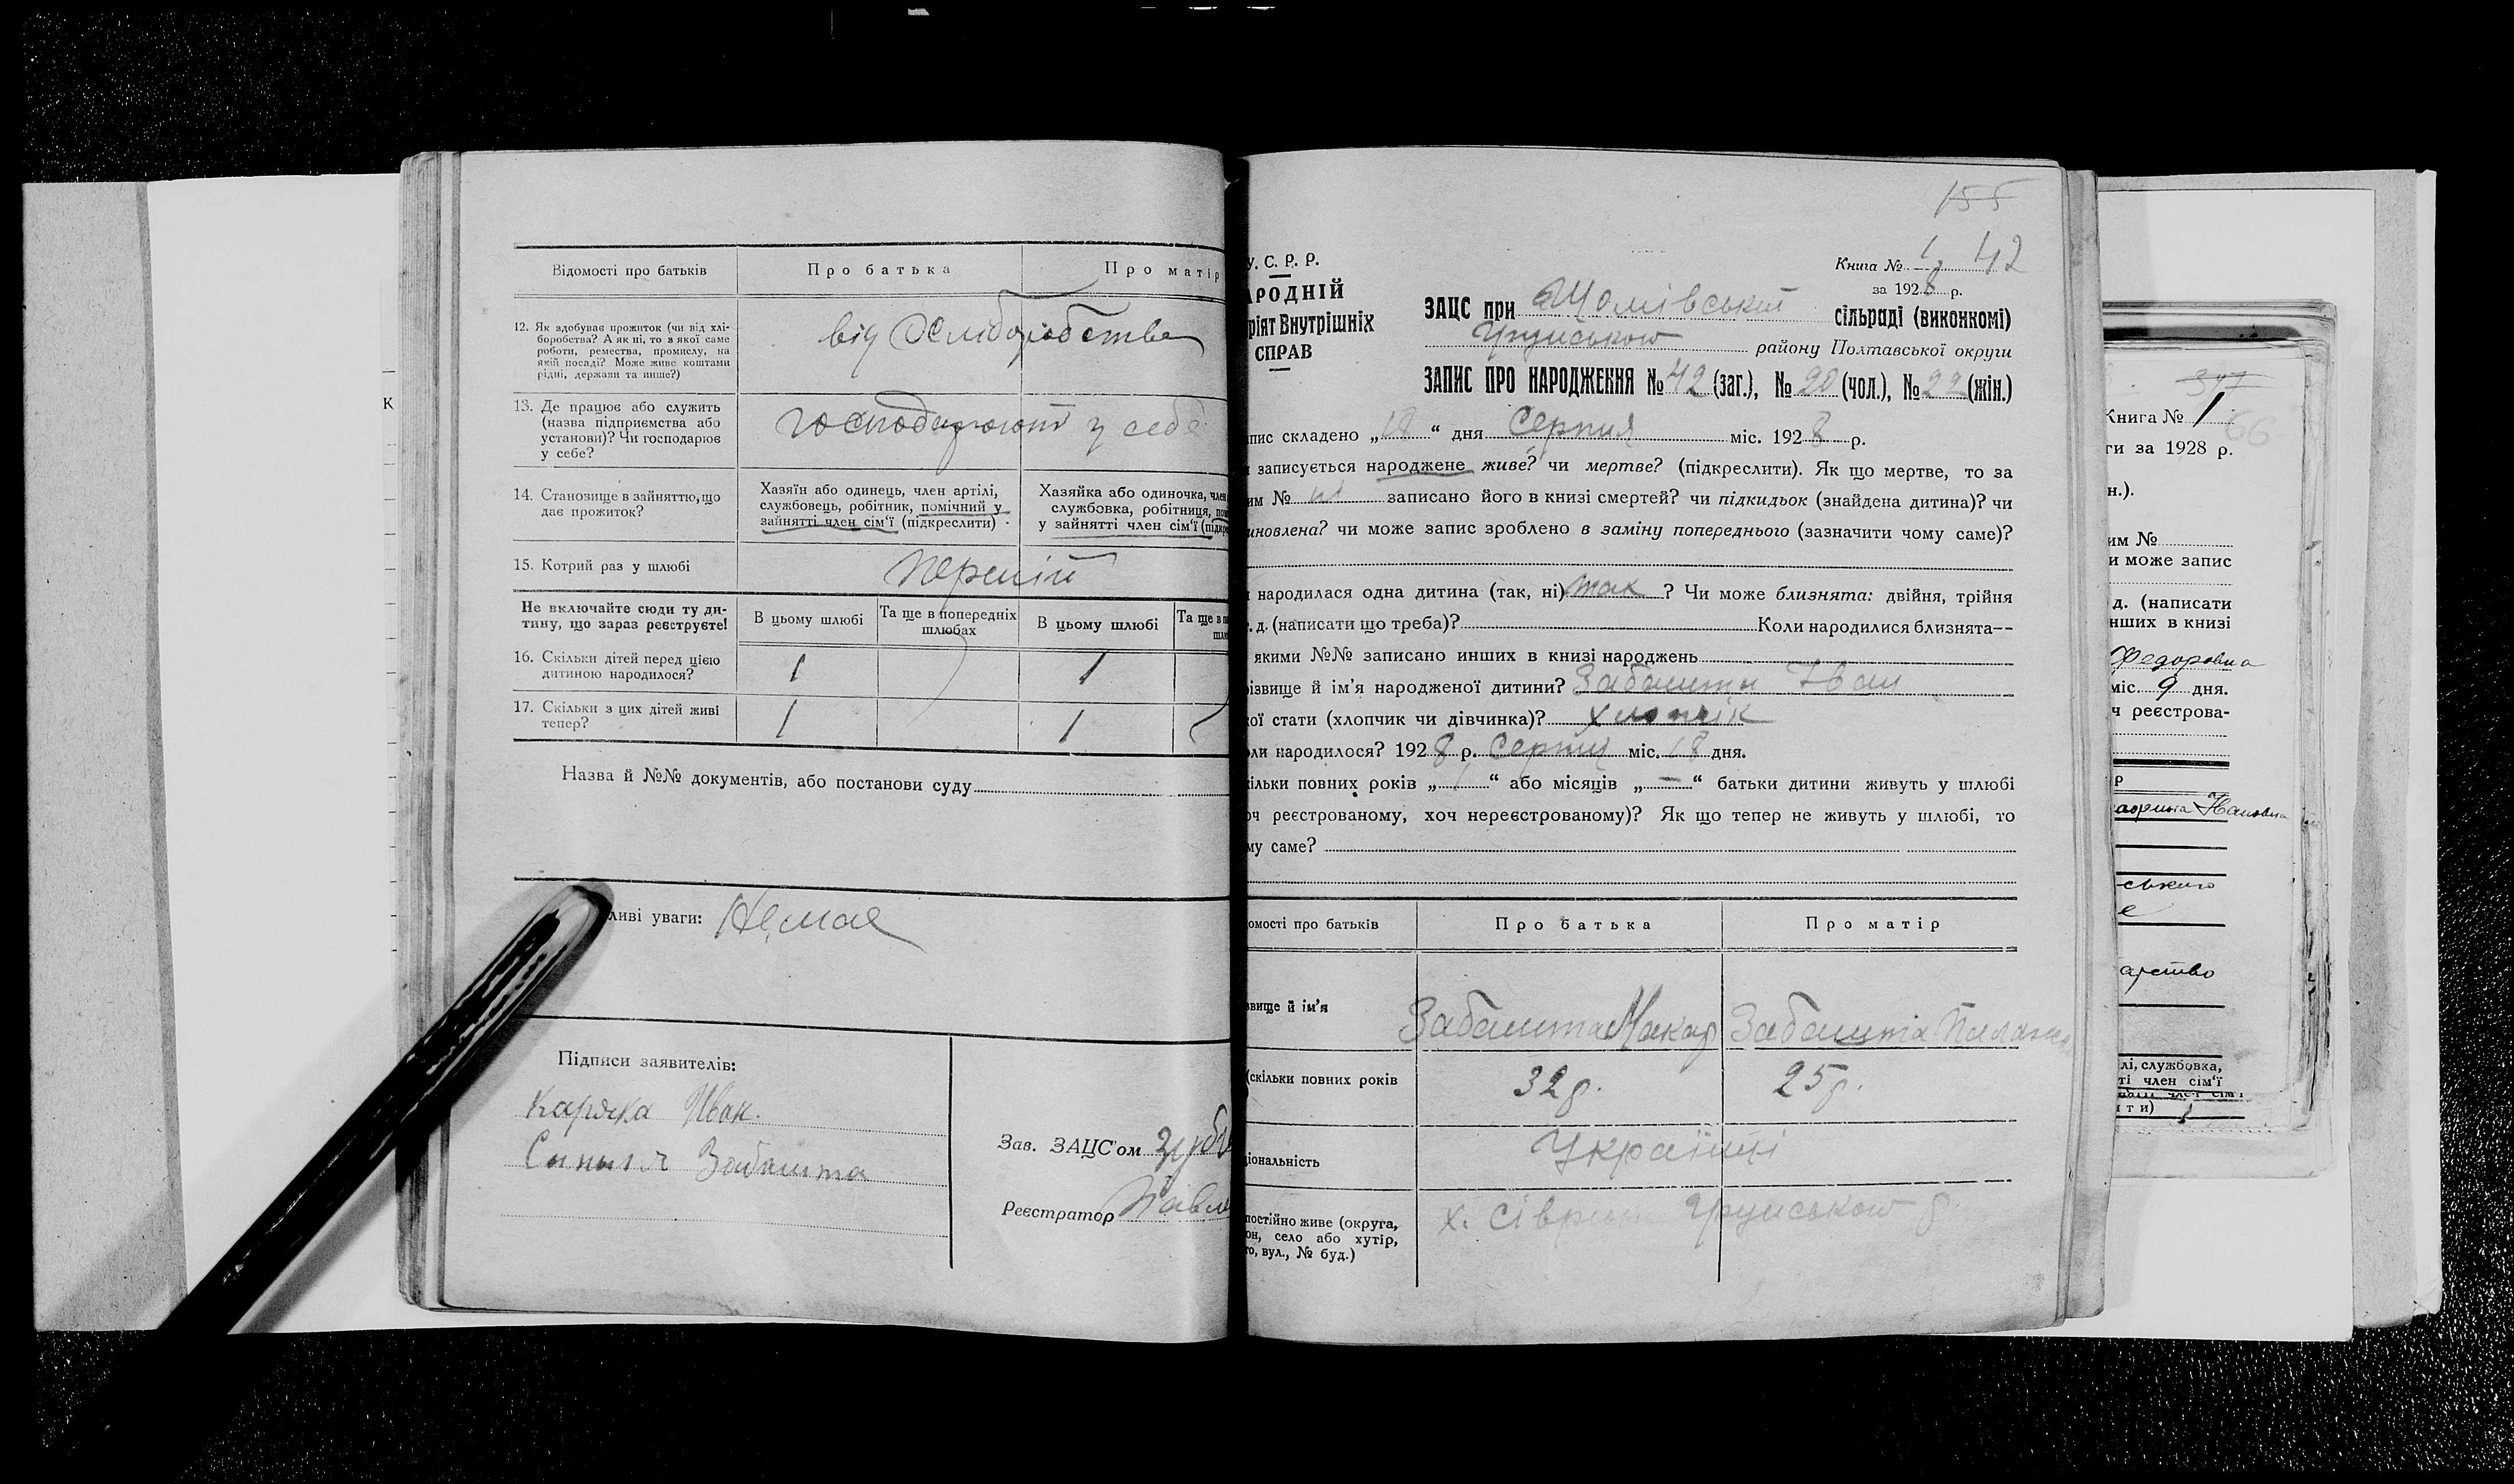 Відомості про батьків
Про батька
Про матір
12. Як здобуває прожиток (чи від хлі-
боробства? А як ні, то з якої саме
роботи, ремества, промислу, на
якій посаді? Може живе коштами
рідні, держави та инше?)
від хліборобства
13. Де працює або служить
(назва підприємства або
установи)? Чи господарює
у себе?
господарюют у себе
14. Становище в зайняттю, що
дає прожиток?
Хазяїн або одинець, член артілі,
службовець, робітник, помічний у
зайнятті член сім'ї (підкреслити)
Хазяйка або одиночка, член
службовка, робітниця,
у зайнятті член сім'ї
15. Котрий раз у шлюбі
Перший
Не включайте сюди ту ди-
тину, що зараз реєструєте!
В цьому шлюбі
Та ще в попередніх
шлюбах
В цьому шлюбі
Та ще в
16. Скільки дітей перед цією
дитиною народилося?
1
1
17. Скільки з цих дітей живі
тепер?
1
1
Назва й №№ документів, або постанови суду
ливі уваги: Немае
Підписи заявителів:
Каряка Иван.
Забашта
Зав. ЗАЦС'ом
Реєстратор
155
У. С. Р. Р.
АРОДНІЙ
ріят Внутрішніх
СПРАВ
Книга № 1 42
за 1928 р.
ЗАЦС при сільраді (виконкомі)
Грунською району Полтавської округи
ЗАПИС ПРО НАРОДЖЕННЯ № 42 (заг.), № 20 (чол.), № 22 (жін.)
пис складено „18“ дня Серпня міс. 1928 р.
записується народжене живе? чи мертве? (підкреслити). Як що мертве, то за
им № записано його в книзі смертей? чи підкидьок (знайдена дитина)? чи
иновлена? чи може запис зроблено в заміну попереднього (зазначити чому саме)?
народилася одна дитина (так, ні) так ? Чи може близнята: двійня, трійня
. д. (написати що треба)? Коли народилися близнята—
якими №№ записано инших в книзі народжень
ізвище й ім'я народженої дитини? Забашта Іван
ої стати (хлопчик чи дівчинка)? хлопчік
ли народилося? 1928 р. Серпня міс. 18 дня.
ільки повних років „1“ або місяців „—“ батьки дитини живуть у шлюбі
ч реєстрованому, хоч нереєстрованому)? Як що тепер не живуть у шлюбі, то
му саме?
омості про батьків
Про батька
Про матір
звище й ім'я
Забашта Макар
Забашта
(скільки повних років
32 р.
25 р.
іональність
Українці
постійно живе (округа,
он, село або хутір,
то, вул., № буд.)
х. Грунською р.
347
Книга № 1
66
ги за 1928 р.
н.).
им №
и може запис
д. (написати
нших в книзі
Федоровна
міс. 9 дня.
ч реєстрова-
р
ського
е
арство
лі, службовка,
ті член сім'ї
К